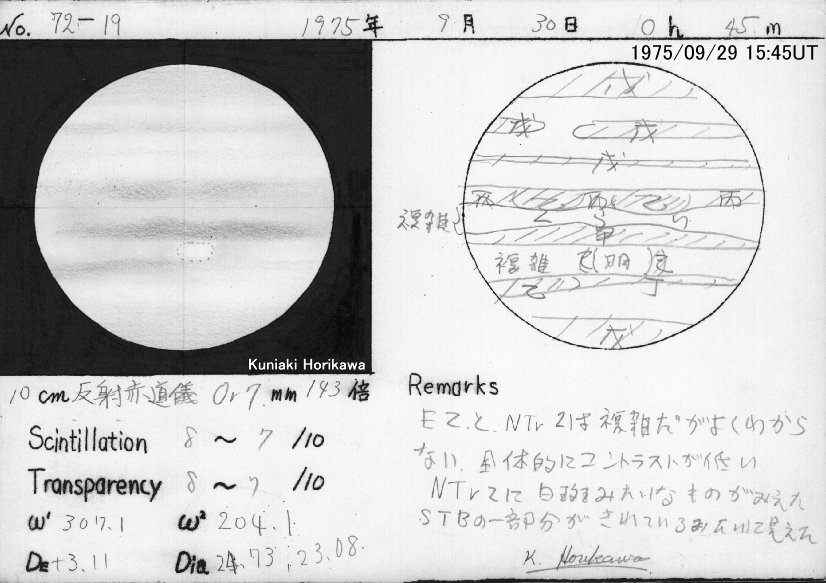 No. 72-19 1975年 9月 30日 0h 45m
1975/09/29 15:45UT
戊
戊 戊
戊
丙 丙
複雑
甲
複雑 (明)
丁
戊
Kuniaki Horikawa
10cm反射赤道儀 Or7mm 143倍
Scintillation 8～7/10
Transparency 8～7/10
ω¹ 307.1 ω² 204.1
DE+3.11 Dia 24.73, 23.08
Remarks
EZと NTrZは複雑だがよくわから
ない. 全体的にコントラストが低い
NTrZに白斑みたいなものがみえた
STBの一部分がきれているみたいに見えた
K. Horikawa